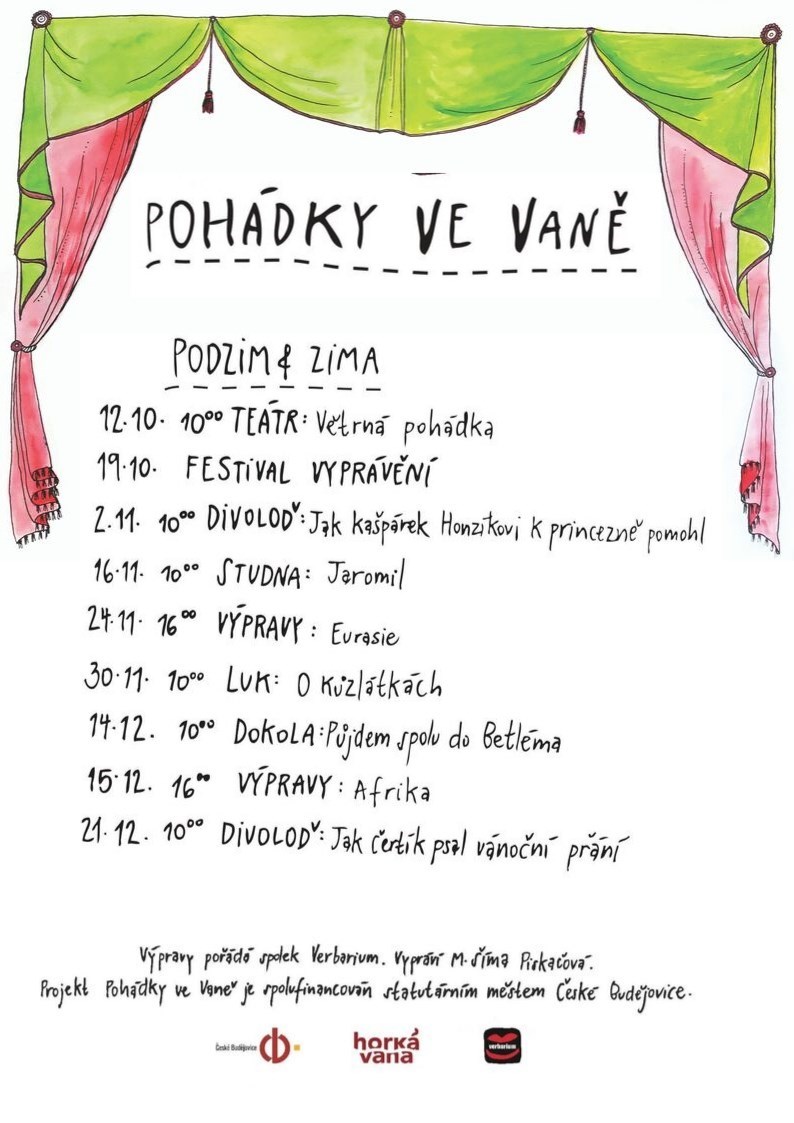 POHÁDKY VE VANĚ
PODZIM & ZIMA
12.10. 10⁰⁰ TEÁTR: Větrná pohádka
19.10. FESTIVAL VYPRÁVĚNÍ
2.11. 10⁰⁰ DIVOLOĎ: Jak kašpárek Honzíkovi k princezně pomohl
16.11. 10⁰⁰ STUDNA: Jaromil
24.11. 16⁰⁰ VÝPRAVY: Eurasie
30.11. 10⁰⁰ LUK: O Kůzlátkách
14.12. 10⁰⁰ DOKOLA: Půjdem spolu do Betléma
15.12. 16⁰⁰ VÝPRAVY: Afrika
21.12. 10⁰⁰ DIVOLOĎ: Jak čertík psal vánoční přání
Výpravy pořádá spolek Verbarium. Vypráví M. Šíma Piskačová.
Projekt Pohádky ve Vaně je spolufinancován statutárním městem České Budějovice.
České Budějovice
horká
vana
verbarium